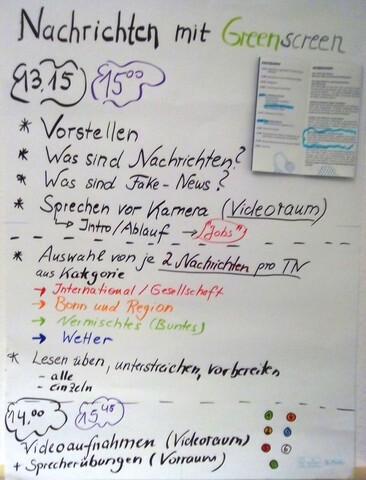 Nachrichten mit Greenscreen
13.15 15⁰⁰
* Vorstellen
* Was sind Nachrichten?
* Was sind Fake-News?
* Sprechen vor Kamera (Videoraum)
↳ Intro/Ablauf → "Jobs"
* Auswahl von je 2 Nachrichten pro TN
aus Kategorie
→ International/Gesellschaft
→ Bonn und Region
→ Vermischtes (Buntes)
→ Wetter
* Lesen üben, unterstreichen, vorbereiten
- alle
- einzeln
14.00 15⁴⁵
Videoaufnahmen (Videoraum)
+ Sprecherübungen (Vorraum)